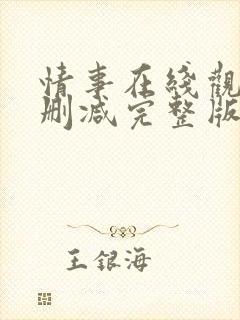 情事在线觀
删减完整版
王银海